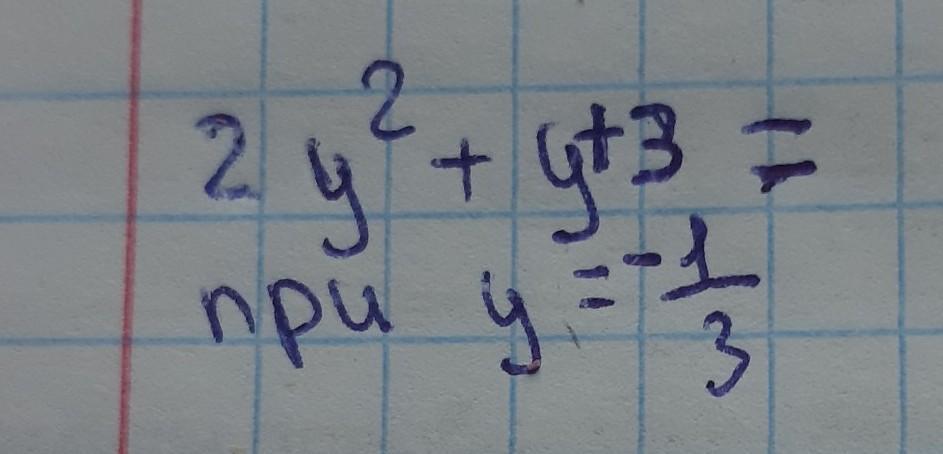 2y² + y+3 =
при y = -1/3